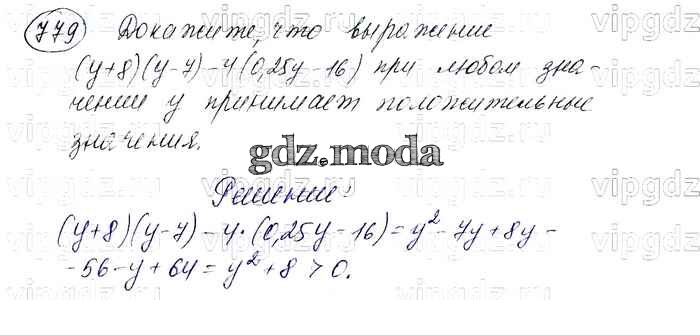 779 Докажите, что выражение
(y+8)(y-7)-4(0,25y-16) при любом зна-
чении y принимает положительные
значения.
gdz.moda
Решение:
(y+8)(y-7)-4·(0,25y-16)=y²-7y+8y-
-56-y+64=y²+8>0.
vipgdz.ru